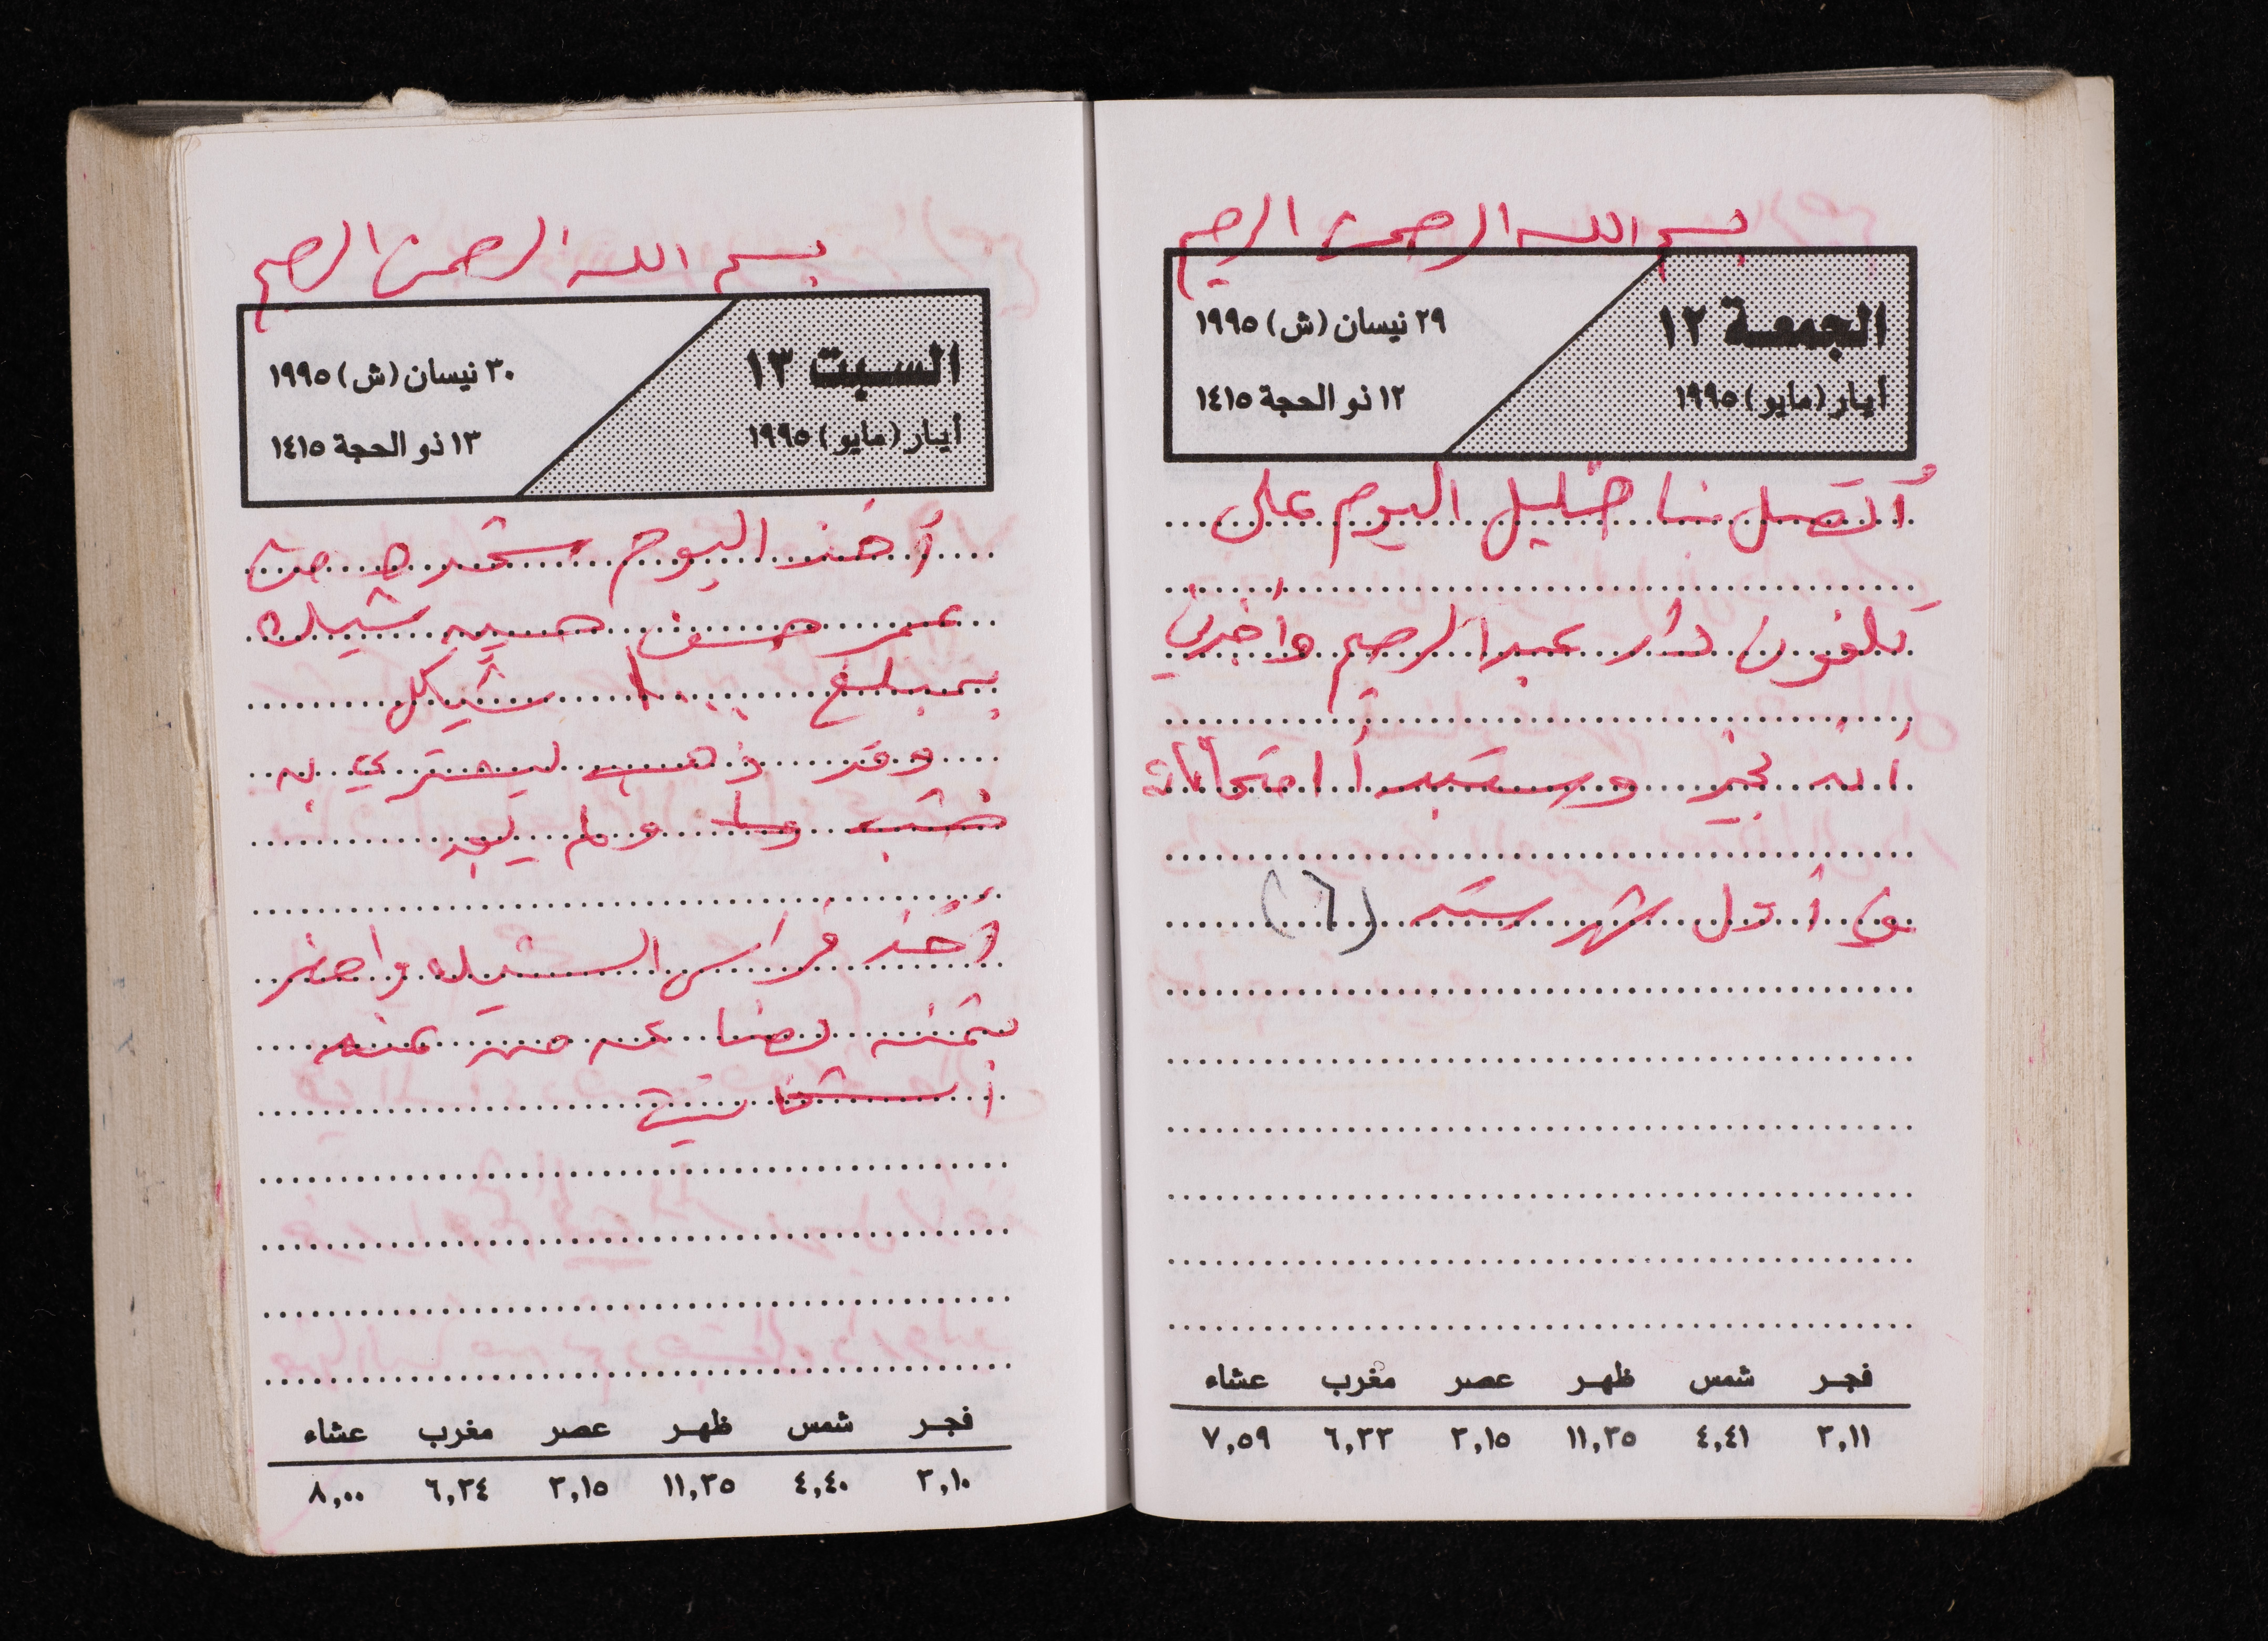 بسم الله الرحمن الرحيم
الجمعة ١٢
أيار (مايو) ١٩٩٥
٢٩ نيسان (ش) ١٩٩٥
١٢ ذو الحجة ١٤١٥
أتصل بنا خليل اليوم على
تلفون دار عبد الرحيم وأخبرني
أنه بخير وستبدأ امتحاناته
في أول شهر ستة (٦)
فجر شمس ظهر عصر مغرب عشاء
٣,١١ ٤,٤١ ١١,٣٥ ٣,١٥ ٦,٣٣ ٧,٥٩
بسم الله الرحمن الرحيم
السبت ١٣
أيار (مايو) ١٩٩٥
٣٠ نيسان (ش) ١٩٩٥
١٣ ذو الحجة ١٤١٥
أخذ اليوم من
عمر حسن شيك
بمبلغ ١٠٠٠ شيكل
وقد ذهب ليشتري به
خشب ولم يعد
أخذ فراس الشيك وأحضر
بثمنه عنه
فجر شمس ظهر عصر مغرب عشاء
٣,١٠ ٤,٤٠ ١١,٣٥ ٣,١٥ ٦,٣٤ ٨,٠٠